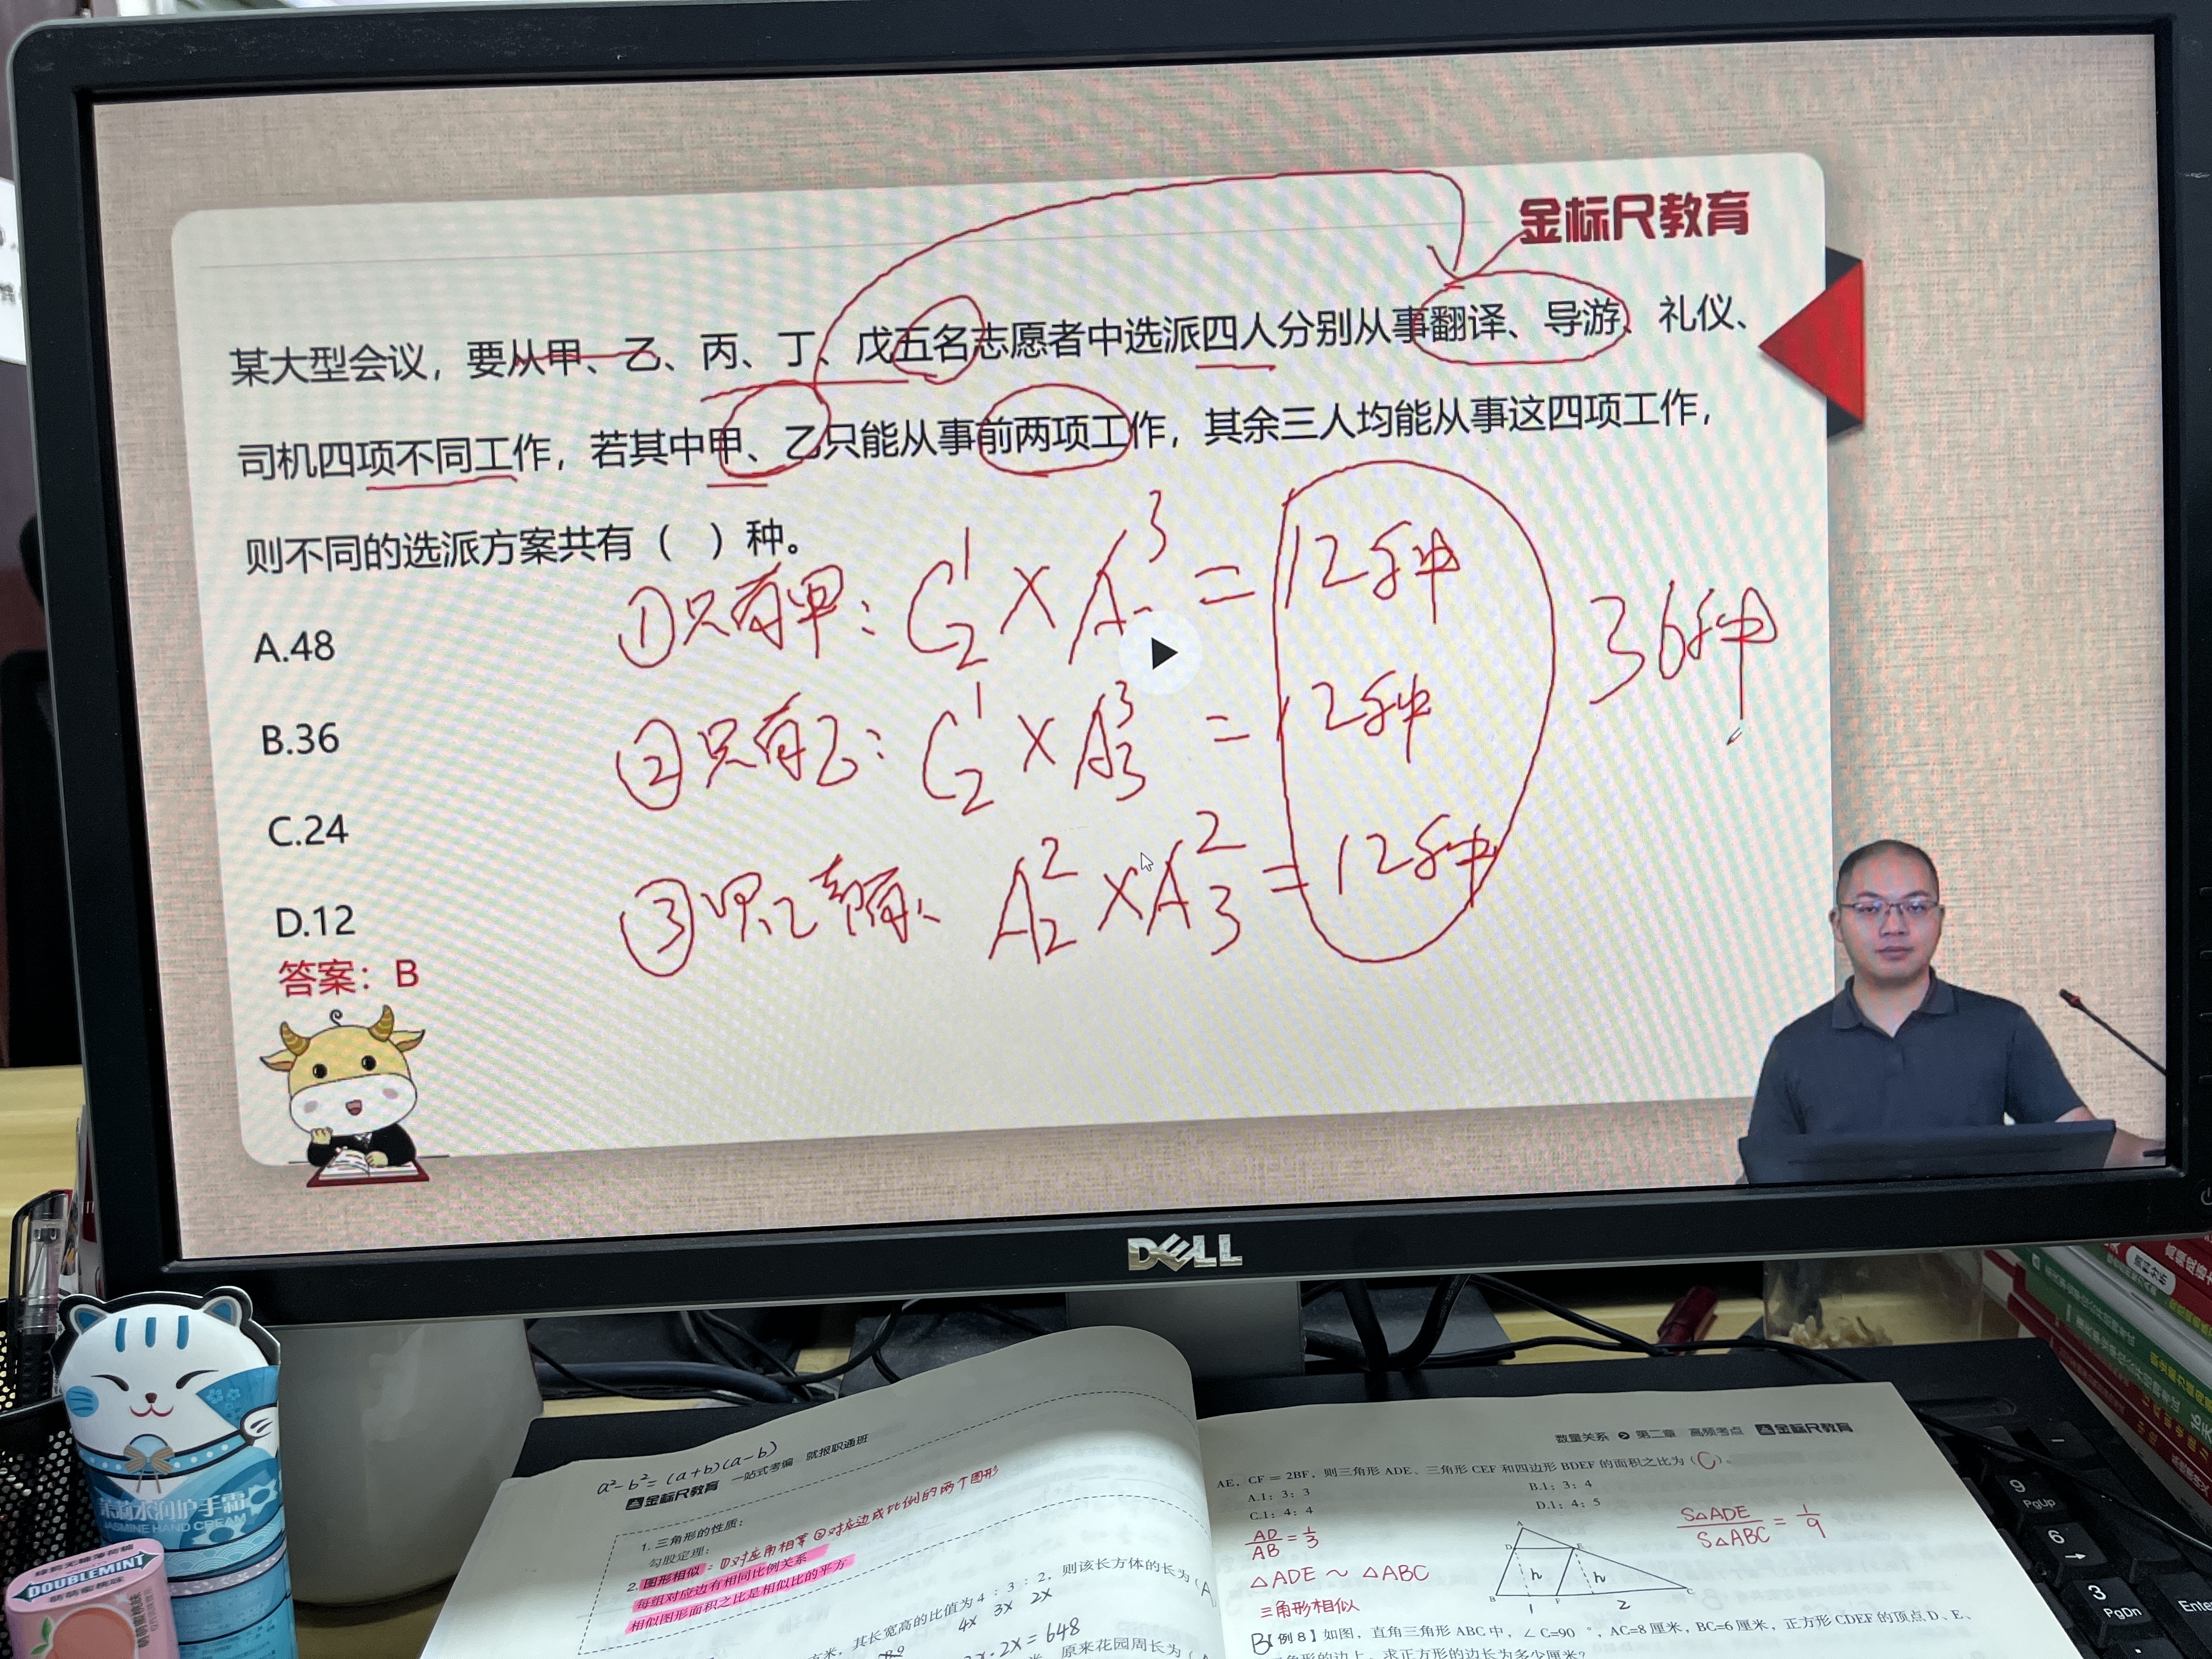 金标尺教育
某大型会议，要从甲、乙、丙、丁、戊五名志愿者中选派四人分别从事翻译、导游、礼仪、
司机四项不同工作，若其中甲、乙只能从事前两项工作，其余三人均能从事这四项工作，
则不同的选派方案共有（ ）种。
A.48
B.36
C.24
D.12
答案：B
①只有甲：C₂¹×A³=12种
②只有乙：C₂¹×A₃³=12种
③甲、乙都有、A₂²×A₃²=12种
36种
DELL
茉莉水润护手霜
JASMINE HAND CREAM
DOUBLEMINT
a²-b²=(a+b)(a-b)
金标尺教育 一站式考编 就报职通班
1. 三角形的性质：
勾股定理：
2. 图形相似：①对应角相等②对应边成比例的两个图形
每组对应边有相同比例关系
相似图形面积之比是相似比的平方
其长宽高的比值为 4：3：2，则该长方体的长为（A
4x 3x 2x
·2x=648
原来花园周长为（
数量关系 第二章 高频考点 金标尺教育
AE，CF＝2BF，则三角形 ADE、三角形 CEF 和四边形 BDEF 的面积之比为（C）。
A.1：3：3
B.1：3：4
C.1：4：4
D.1：4：5
AD/AB=1/3
S△ADE/S△ABC=1/9
△ADE∽△ABC
三角形相似
A
D
E
h
h
B
F
C
1
2
B【例 8】如图，直角三角形 ABC 中，∠C=90°，AC=8 厘米，BC=6 厘米，正方形 CDEF 的顶点 D、E、
角形的边上，求正方形的边长为多少厘米？
9
PgUp
6
→
3
PgDn
Enter
资料分析